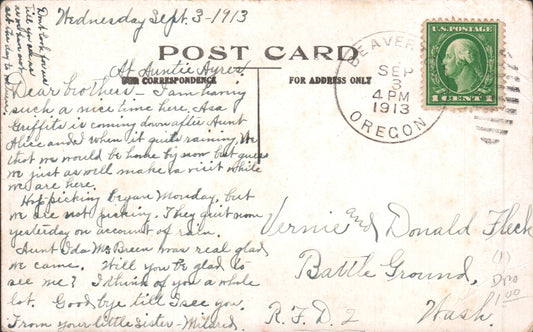 Wednesday Sept. 3-1913
Don't look for me
till you see me
POST CARD
At Auntie Ayres.
FOR CORRESPONDENCE
FOR ADDRESS ONLY
Dear brothers- I am having
such a nice time here. Asa
Griffits is coming down after Aunt
Alice and when it quits raining. We
that we would be home by now but guess
we just as well make a visit while
we are here.
Hop picking began Monday, but
we are not picking. They quit noon
yesterday on account of rain.
Aunt Ida McBreen was real glad
we came. Will you be glad to
see me? I think of you a whole
lot. Good bye till I see you.
From your little Sister- Mildred.
BEAVER
SEP
3
4 PM
1913
OREGON
U.S. POSTAGE
1 CENT 1
Vernie and Donald Fleck
Battle Ground,
R.F.D. 2
Wash.
(1)
DPO
1.00